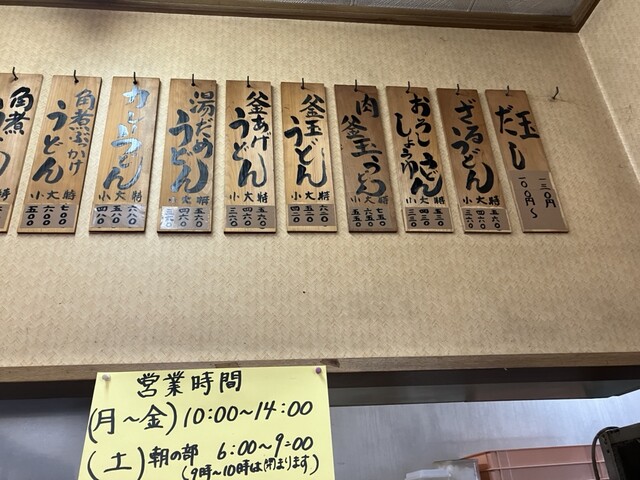 玉
だし
一三〇円
一〇〇円〜
ざるうどん
小大特
三六〇
四六〇
五六〇
おろし
しょうゆ
うどん
小大特
三三〇
四三〇
五三〇
肉
釜玉うどん
小大特
五五〇
六五〇
七五〇
釜玉
うどん
小大特
四二〇
五二〇
六二〇
釜あげ
うどん
小大特
三六〇
四六〇
五六〇
湯だめ
うどん
小大特
三六〇
四六〇
五六〇
カレーうどん
小大特
四八〇
五八〇
六八〇
角煮ぶっかけ
うどん
小大特
五〇〇
六〇〇
七〇〇
角煮
営業時間
(月〜金) 10:00〜14:00
(土) 朝の部 6:00〜9:00
(9時〜10時は閉まります)